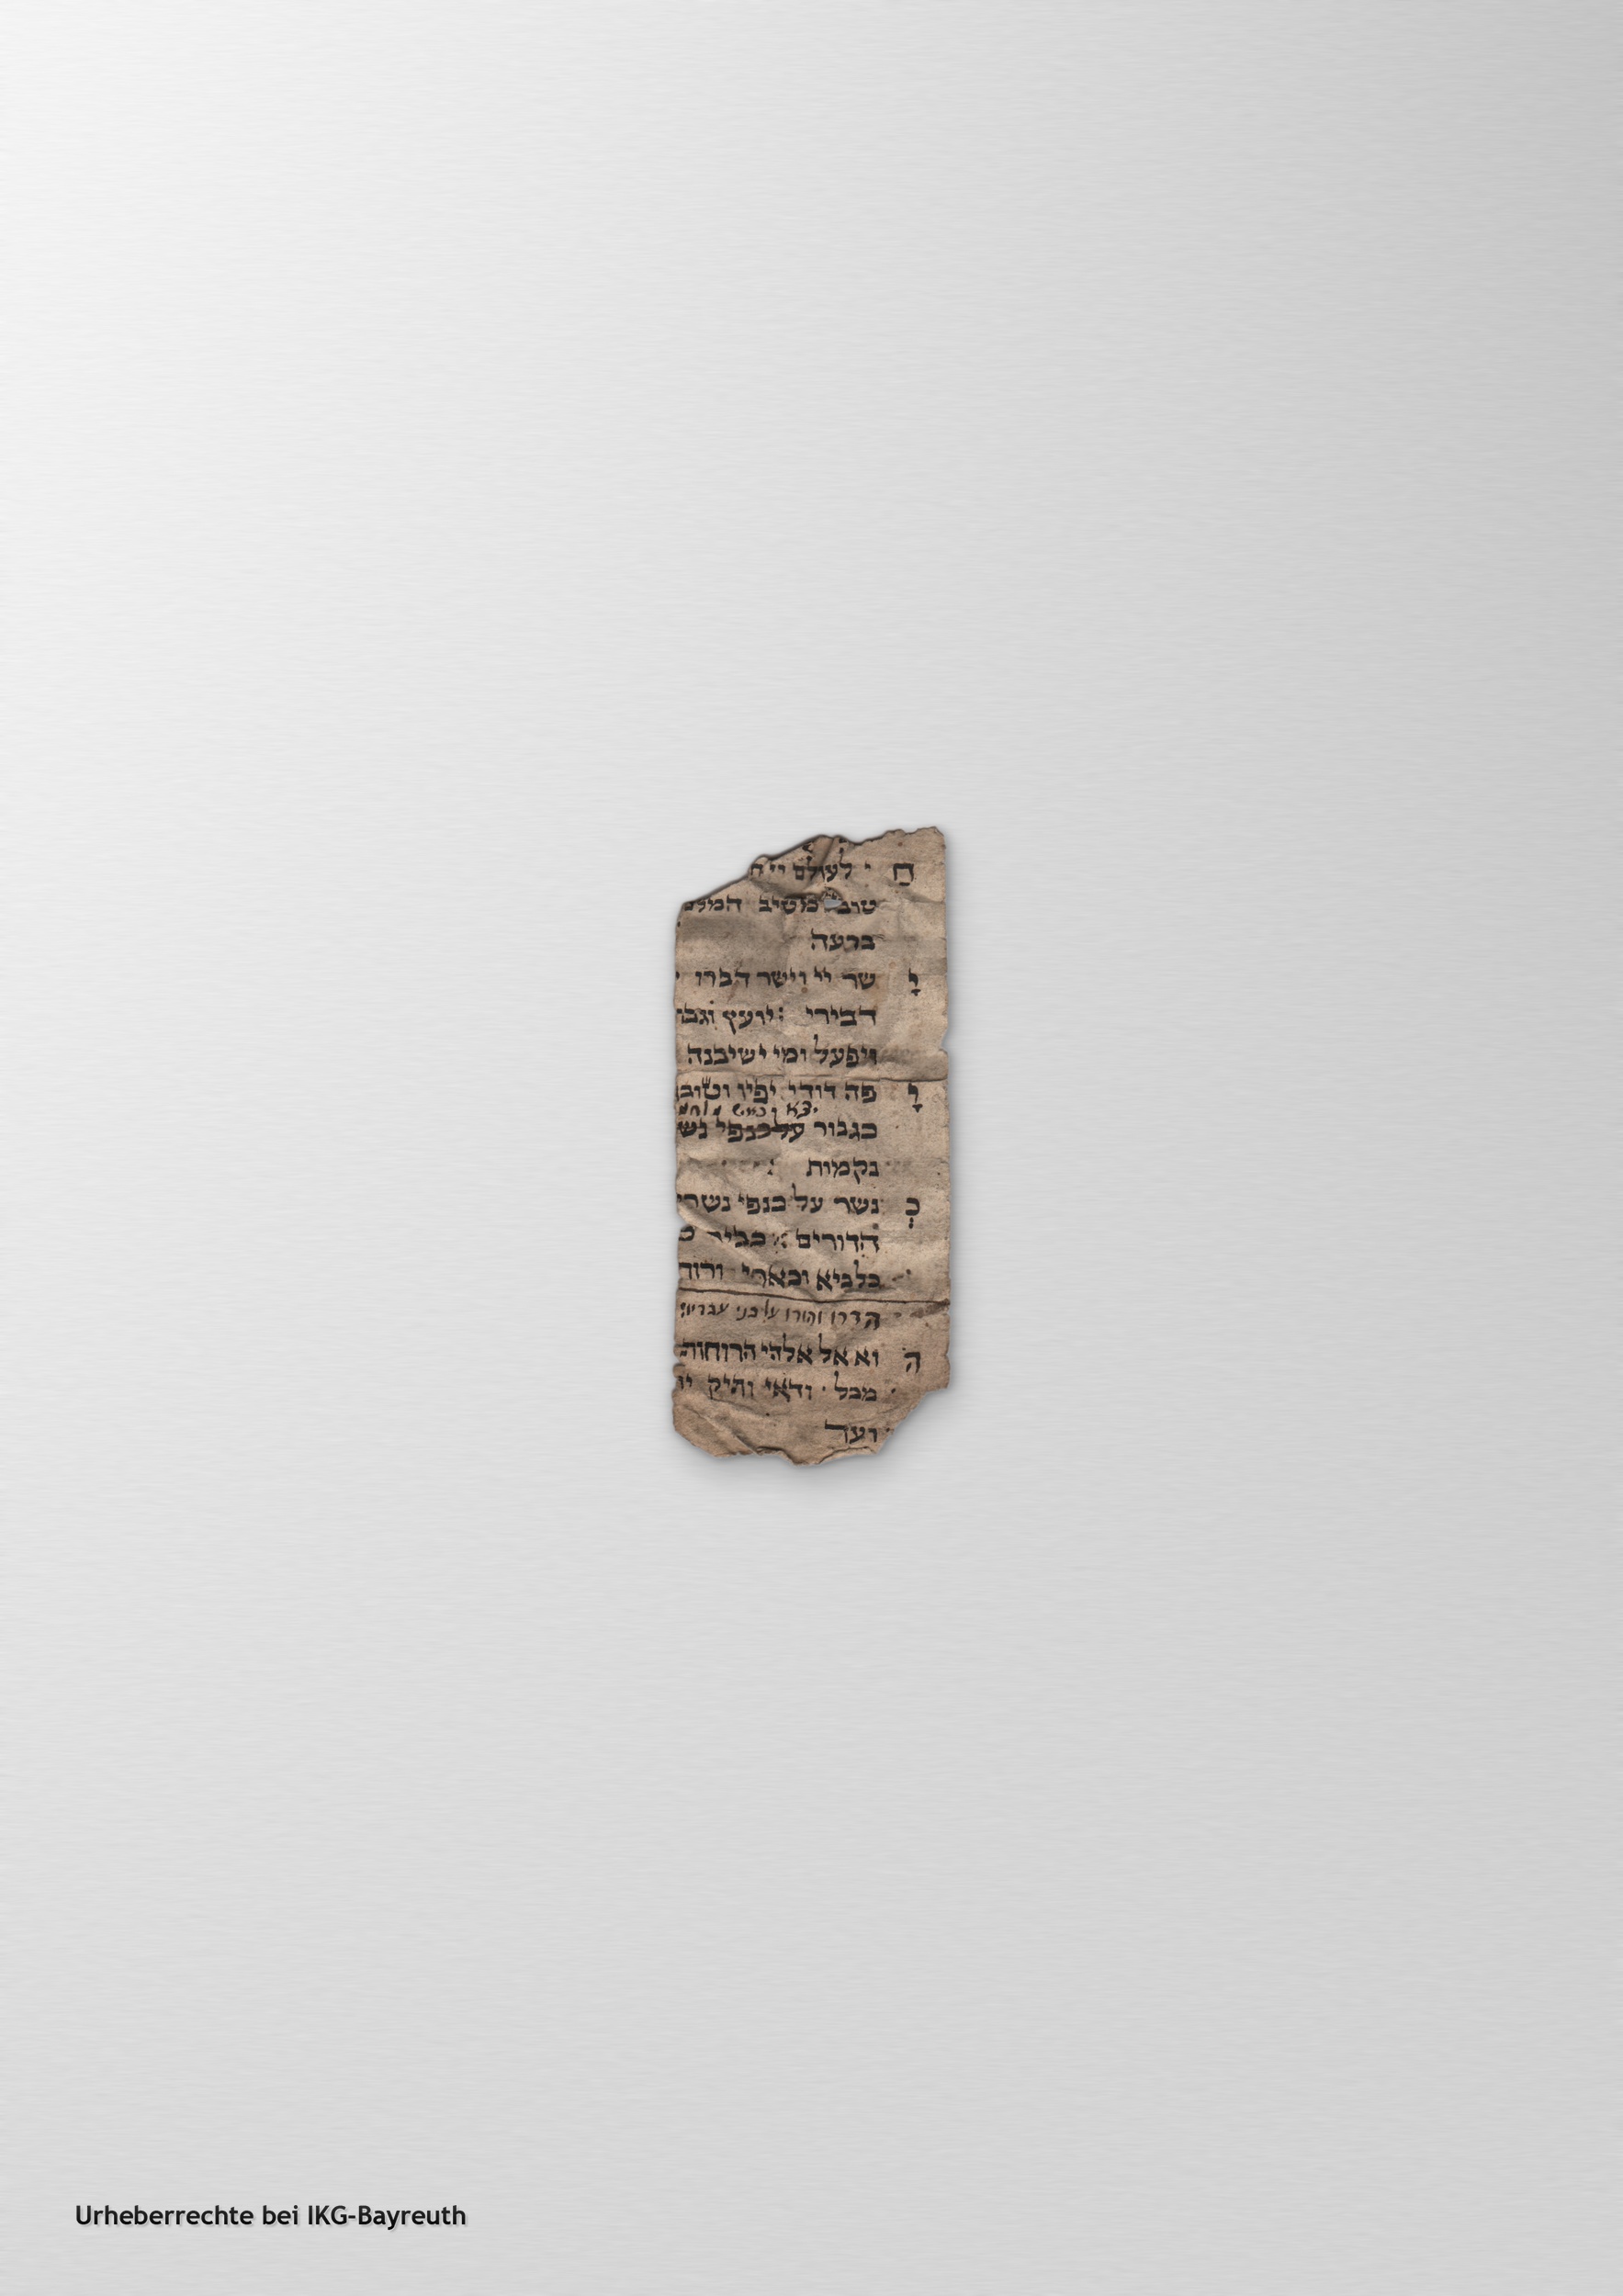 חַ י לעולם יי ח
טוב משיב המלכ
ברעה
יָ שר יי וישר דברו
דבירי : יועץ וגבו
ויפעל ומי ישיבנה
יָ פה דודי יפיו וטובו
יצא
כגבור על כנפי נש
נקמות :
כְ נשר על כנפי נשרי
הדורים : כביר כ
כלביא וכארי ודוד
הדרו והודו על בני עבדיו
הָ וא אל אלהי הרוחות
מכל ודאי ותיק
ועד
Urheberrechte bei IKG-Bayreuth